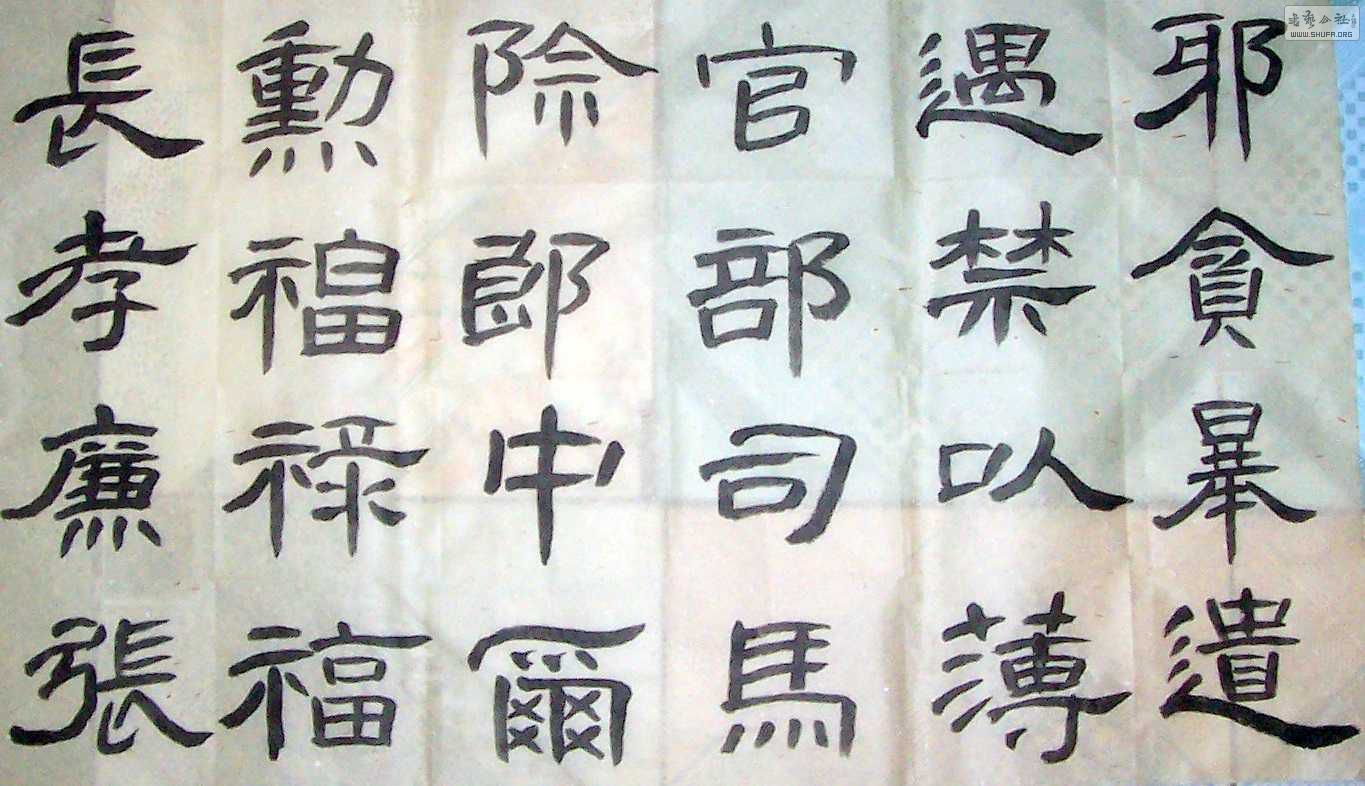 耶貪暴遺
遇禁以薄
官部司馬
除郎中爾
勳福祿福
長孝廉張
書藝公社
WWW.SHUFA.ORG